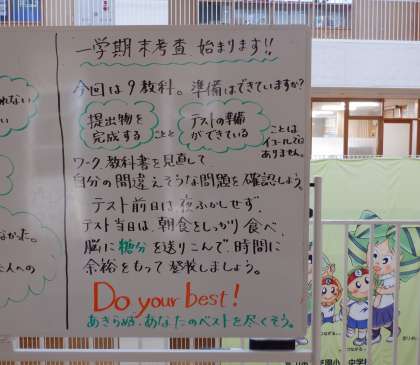 一学期末考査 始まります!!
今回は9教科。準備はできていますか?
提出物を
完成する
こと と
テストの準備
ができている
ことは
イコールでは
ありません。
ワーク、教科書を見直して、
自分の間違えそうな問題を確認しよう。
テスト前日は夜ふかしせず、
テスト当日は、朝食をしっかり食べ、
脳に糖分を送りこんで、時間に
余裕をもって登校しましょう。
Do your best!
あきらめず、あなたのベストを尽くそう。
れない
い
なかった。